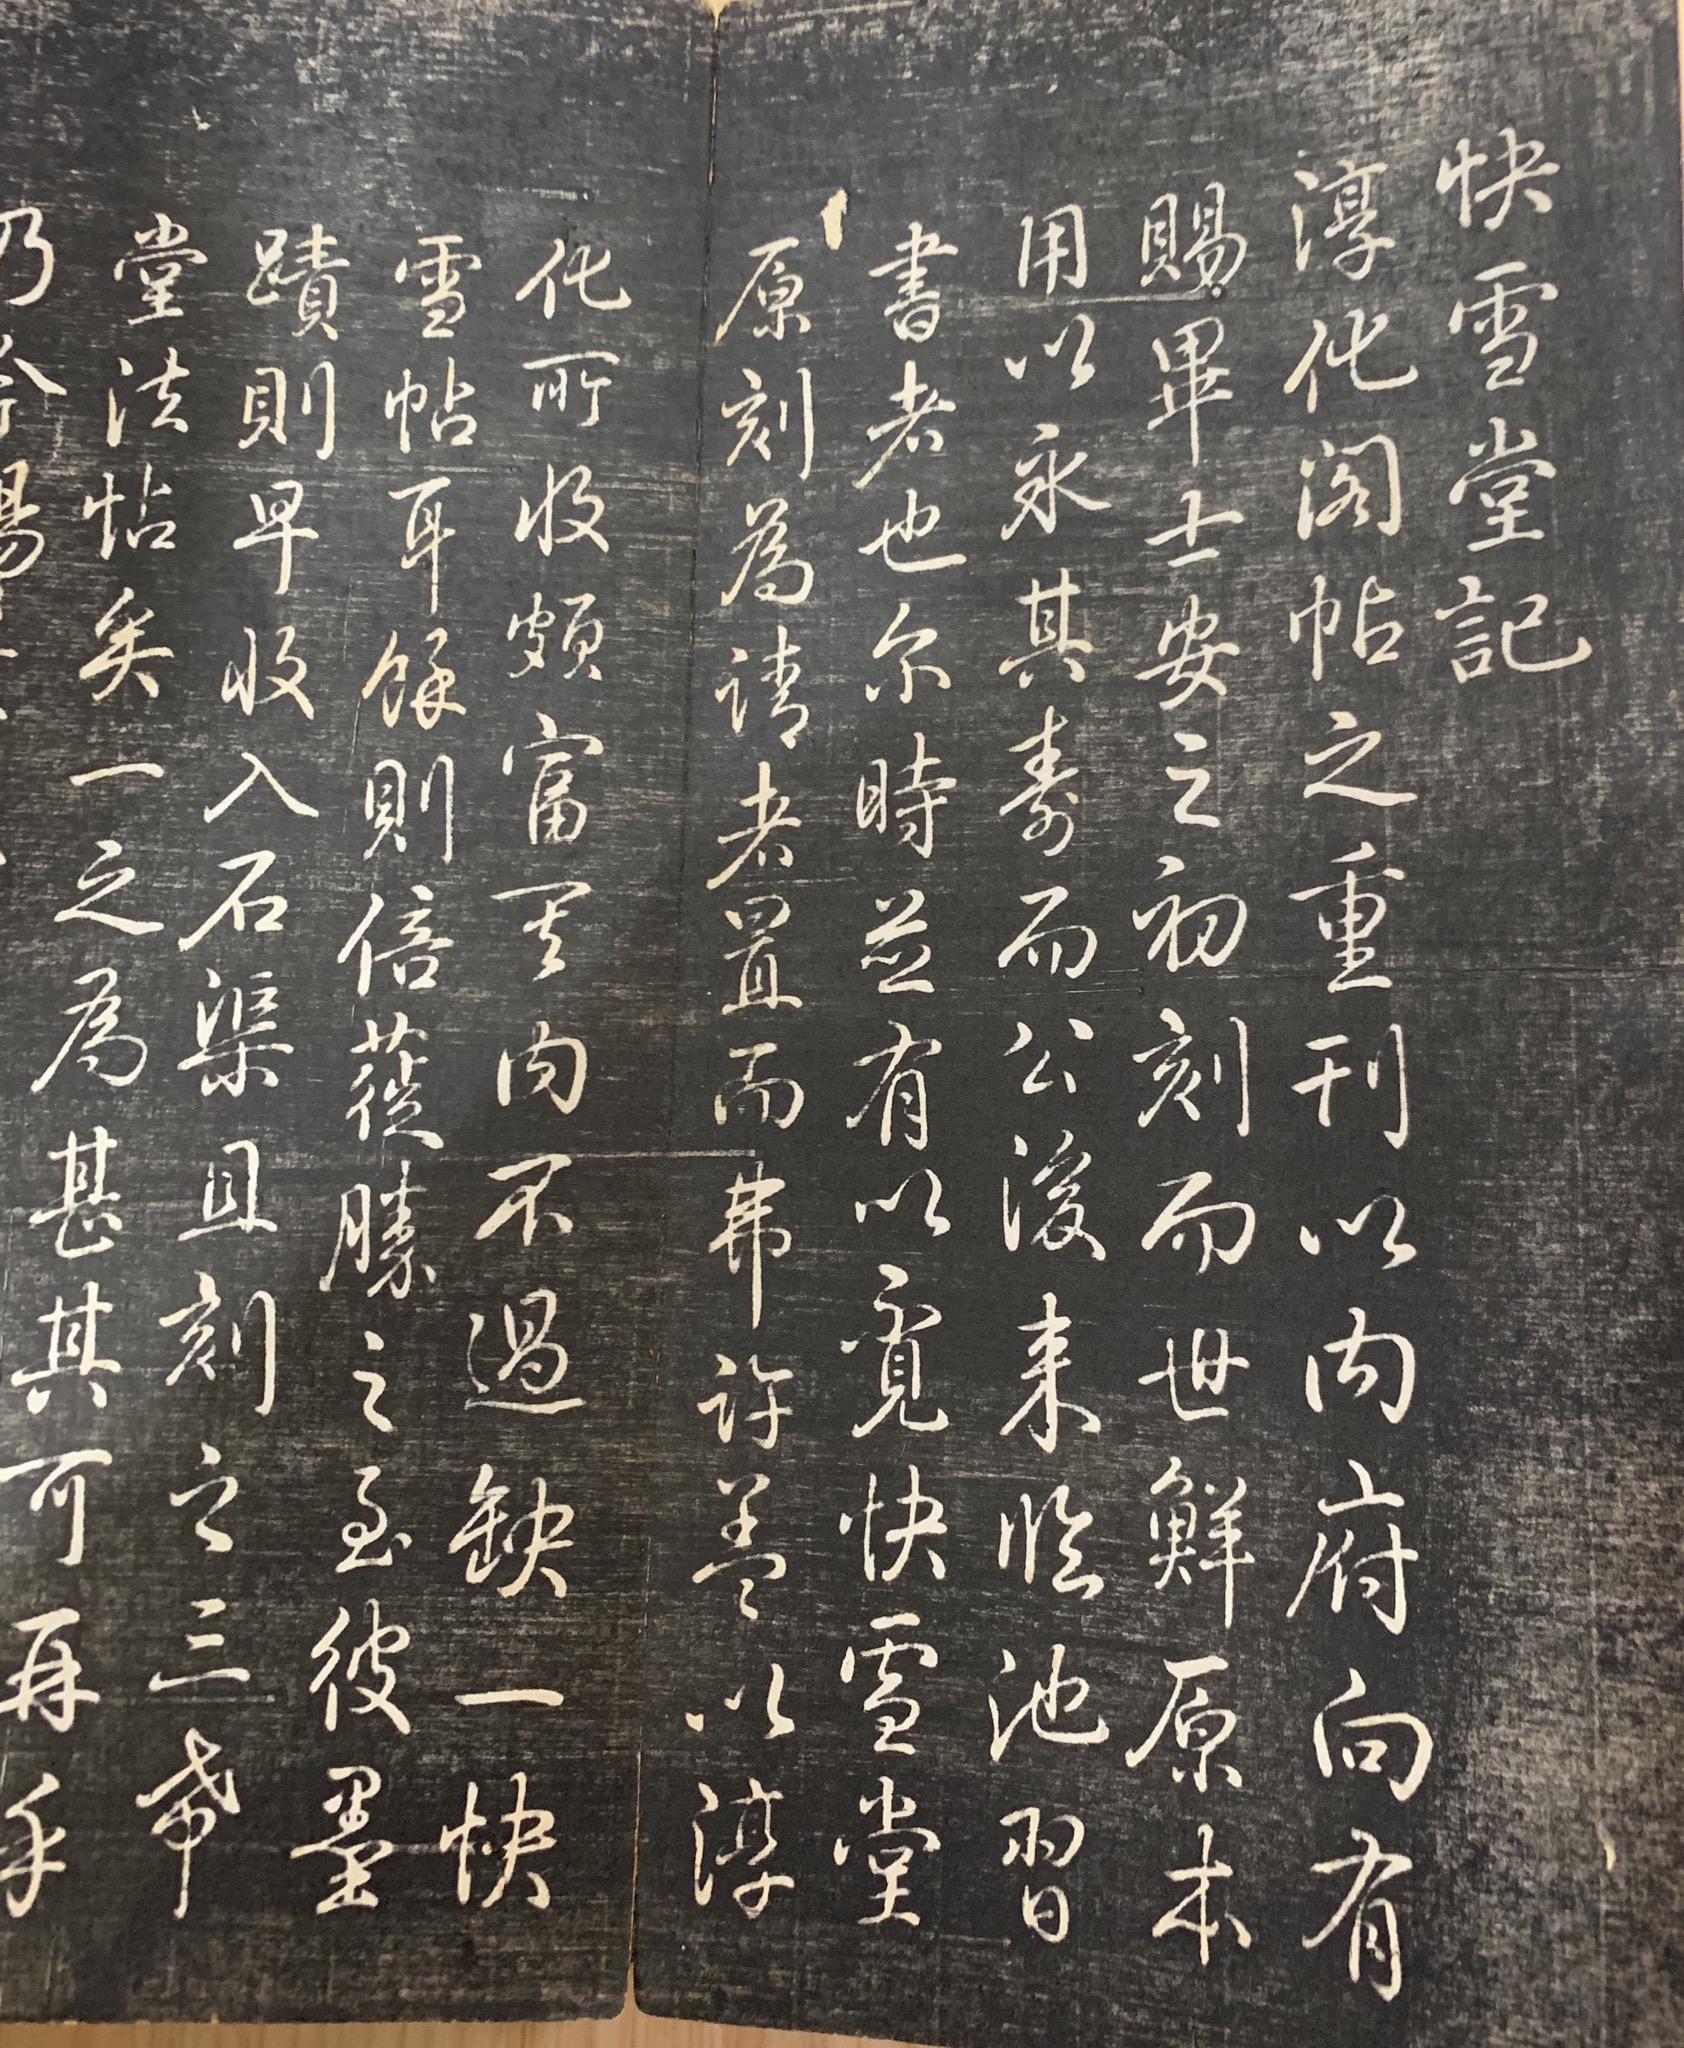 快雪堂記
淳化閣帖之重刊以內府向有
賜畢士安之初刻而世鮮原本
用以永其壽而公後來臨池習
書者也尔時並有以覓快雪堂
原刻為請者置而弗許盖以淳
化所收頗富其內不過缺一快
雪帖耳餘則倍蓰勝之至彼墨
蹟則早收入石渠且刻之三希
堂法帖矣一之為甚其可再乎
乃